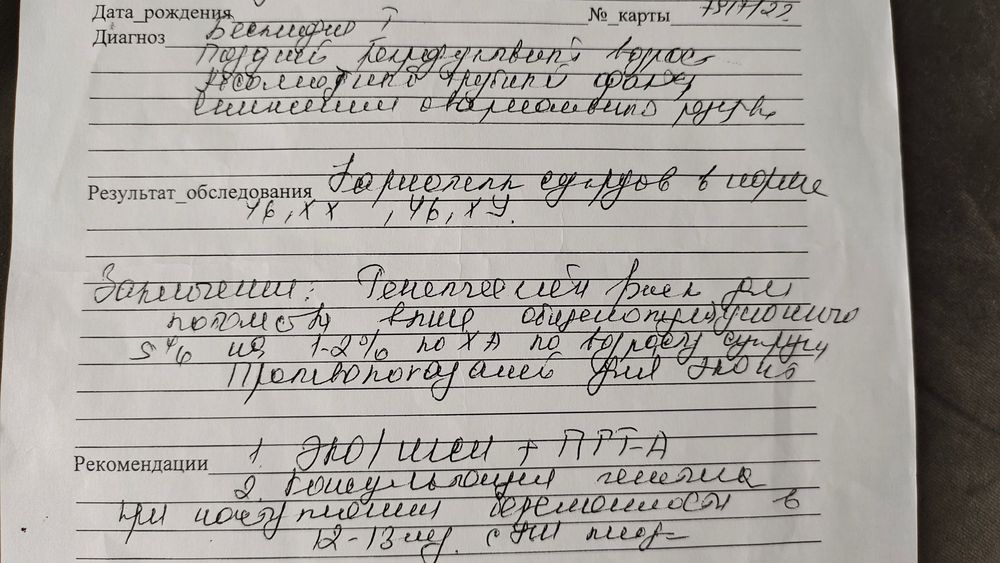 Дата_рождения № карты 7817/22
Диагноз Бесплодие I
Поздний репродуктивный возраст
Абсолютный трубный фактор
Снижение овариального резерва
Результат_обследования Кариотепы супругов в норме
46,XX , 46,XY.
Заключение: Генетический риск для
потомства выше общепопуляционного
5% на 1-2% по ХА по возрасту супруги
Противопоказаний для ЭКО нет
Рекомендации 1. ЭКО/ИКСИ + ПГТ-А
2. Консультация генетика
при наступлении беременности в
12-13 нед. с УЗИ плода